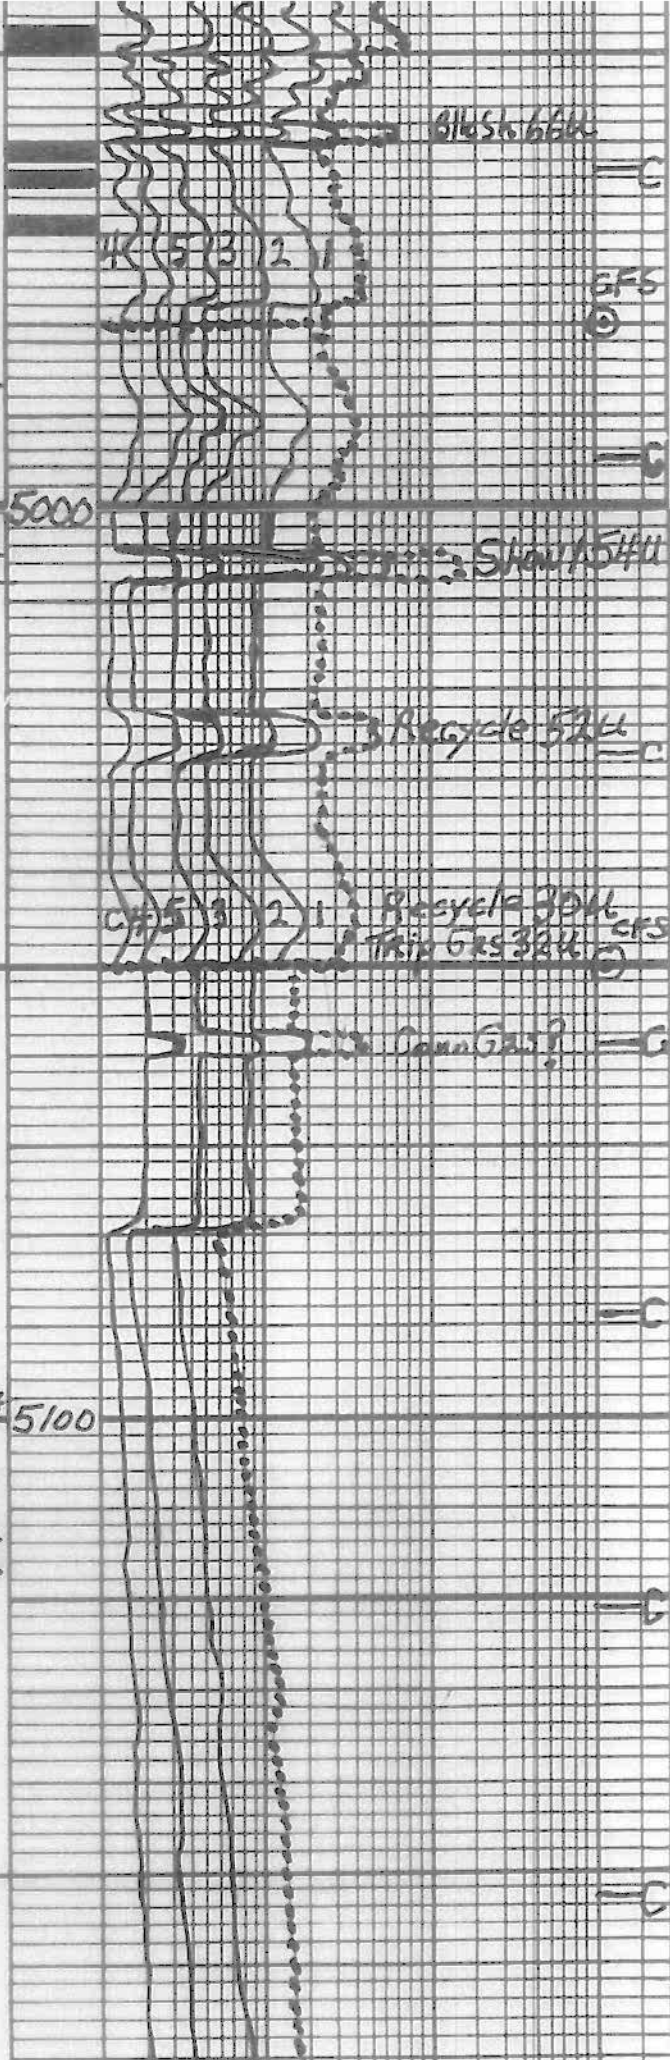 Blk Sh 66u
C
4 5 3 2 1
CFS
C
5000
Show 154u
Recycle 52u
C
C4 5 3 2 1 Recycle 30u
Trip Gas 32u CFS
Conn Gas? C
C
5100
C
C